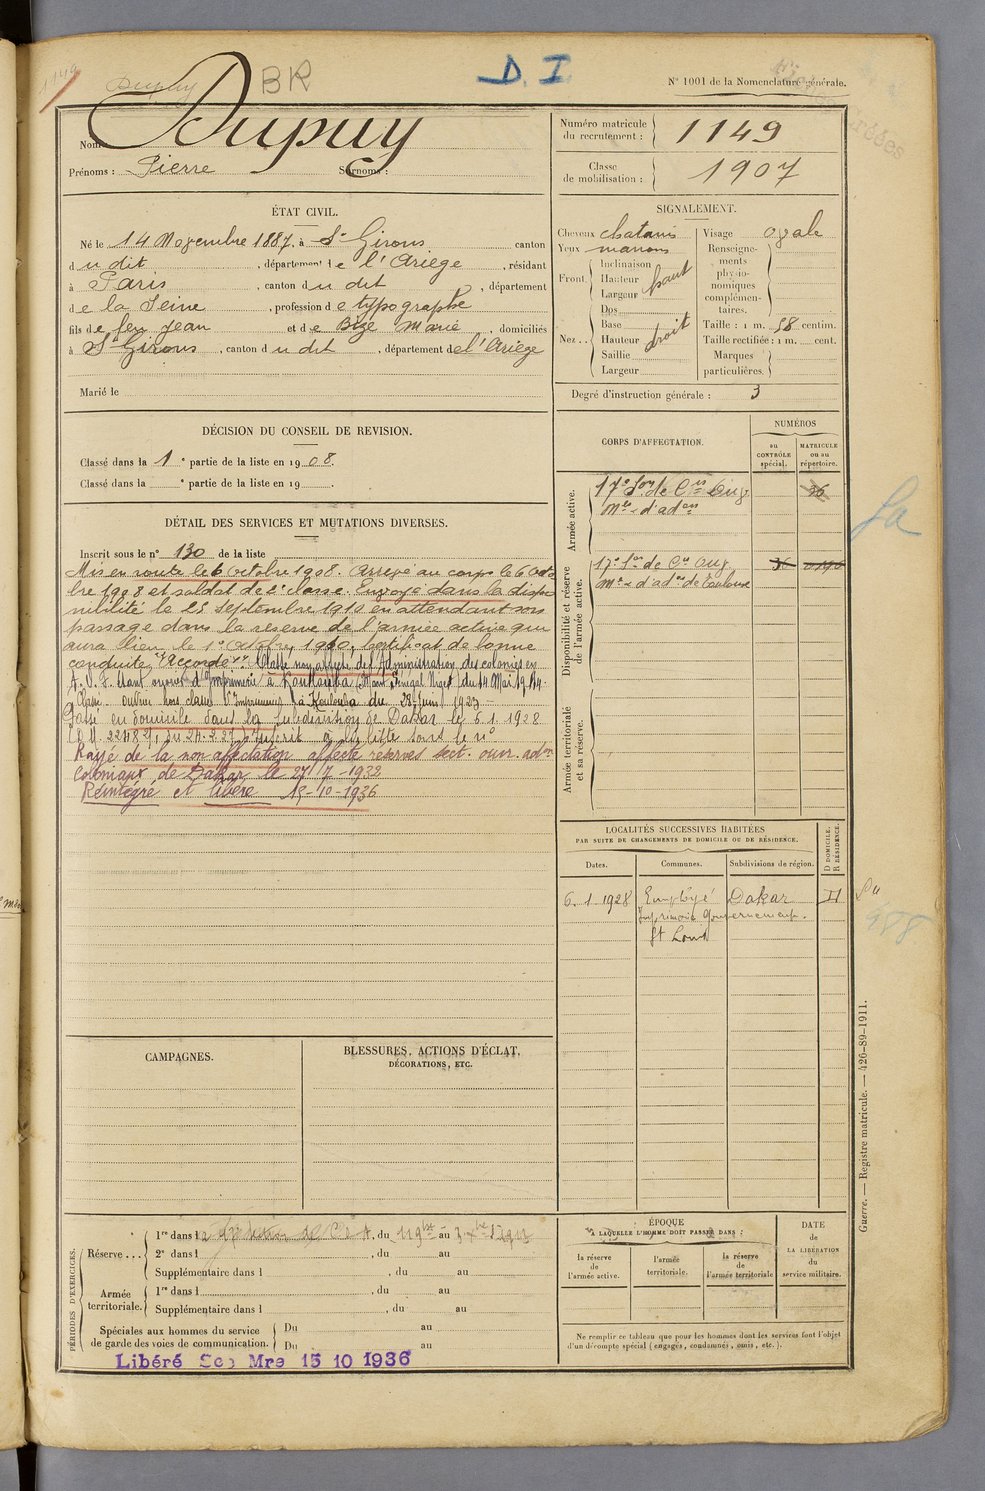 1149
Dupuy
BR
D. I.
N° 1001 de la Nomenclature générale.
Nom
Dupuy
Prénoms : Pierre
Surnoms :
Numéro matricule
du recrutement :
1149
Classe
de mobilisation :
1907
ÉTAT CIVIL.
Né le 14 Novembre 1887, à St Girons canton
du dit, département de l'Ariège, résidant
à Paris, canton du dit, département
de la Seine, profession de typographe
fils de feu Jean et de Bize Marie, domiciliés
à St Girons, canton du dit, département de l'Ariège
Marié le
SIGNALEMENT.
Cheveux chatains
Yeux marrons
Front.
Inclinaison
Hauteur
Largeur
haut
Nez..
Dos
Base
Hauteur
Saillie
Largeur
droit
Visage ovale
Renseigne-
ments
physio-
nomiques
complémen-
taires.
Taille : 1 m. 58 centim.
Taille rectifiée : 1 m. cent.
Marques
particulières.
Degré d'instruction générale : 3
DÉCISION DU CONSEIL DE REVISION.
Classé dans la 1e partie de la liste en 1908.
Classé dans la e partie de la liste en 19 .
DÉTAIL DES SERVICES ET MUTATIONS DIVERSES.
Inscrit sous le n° 130 de la liste
Mis en route le 6 octobre 1908. Arrivé au corps le 6 Octo
bre 1908 et soldat de 2e classe. Envoyé dans la dispo
nibilité le 25 Septembre 1910 en attendant son
passage dans la réserve de l'armée active qui
aura lieu le 1er Octobre 1910, Certificat de bonne
conduite "Accordé". Classé non affecté de l'Administration des colonies en
A.O.F. étant ouvrier d'Imprimerie à Koulouba (Haut Sénégal Niger) du 14 Mai 1914.
Classé ouvrier hors classe d'Imprimerie à Koulouba du 28 juin 1923
Passé en domicile dans la subdivision de Dakar le 6.1.1928
inscrit à la liste sous le n°
Rayé de la non affectation affecté réserves sect. ouvr. adon
coloniaux de Dakar le 27-7-1932
Réintégré et libéré 15-10-1936
CORPS D'AFFECTATION.
NUMÉROS
au
CONTRÔLE
spécial.
MATRICULE
ou au
répertoire.
Armée active.
17e Son de Cis Ouv.
Mres d'adon
36
Disponibilité et réserve
de l'armée active.
17e Son de Cis Ouv.
Mres d'adon de Toulouse
36
Armée territoriale
et sa réserve.
Sa
LOCALITÉS SUCCESSIVES HABITÉES
PAR SUITE DE CHANGEMENTS DE DOMICILE OU DE RÉSIDENCE.
Dates.
Communes.
Subdivisions de région.
D DOMICILE.
R RÉSIDENCE.
6.1.1928 Employé Dakar D
Imprimerie Gouvernement.
St Louis
CAMPAGNES.
BLESSURES, ACTIONS D'ÉCLAT,
DÉCORATIONS, ETC.
PÉRIODES D'EXERCICES.
Réserve...
1re dans la, du au
2e dans l, du au
Supplémentaire dans l, du au
Armée
territoriale.
1re dans l, du au
Supplémentaire dans l, du au
Spéciales aux hommes du service
de garde des voies de communication.
Du au
Du au
Libéré Ser Mre 15 10 1936
ÉPOQUE
À LAQUELLE L'HOMME DOIT PASSER DANS :
la réserve
de
l'armée active.
l'armée
territoriale.
la réserve
de
l'armée territoriale
DATE
de
LA LIBÉRATION
du
service militaire.
Ne remplir ce tableau que pour les hommes dont les services font l'objet
d'un décompte spécial (engagés, condamnés, omis, etc.).
Guerre. — Registre matricule. — 426-89-1911.